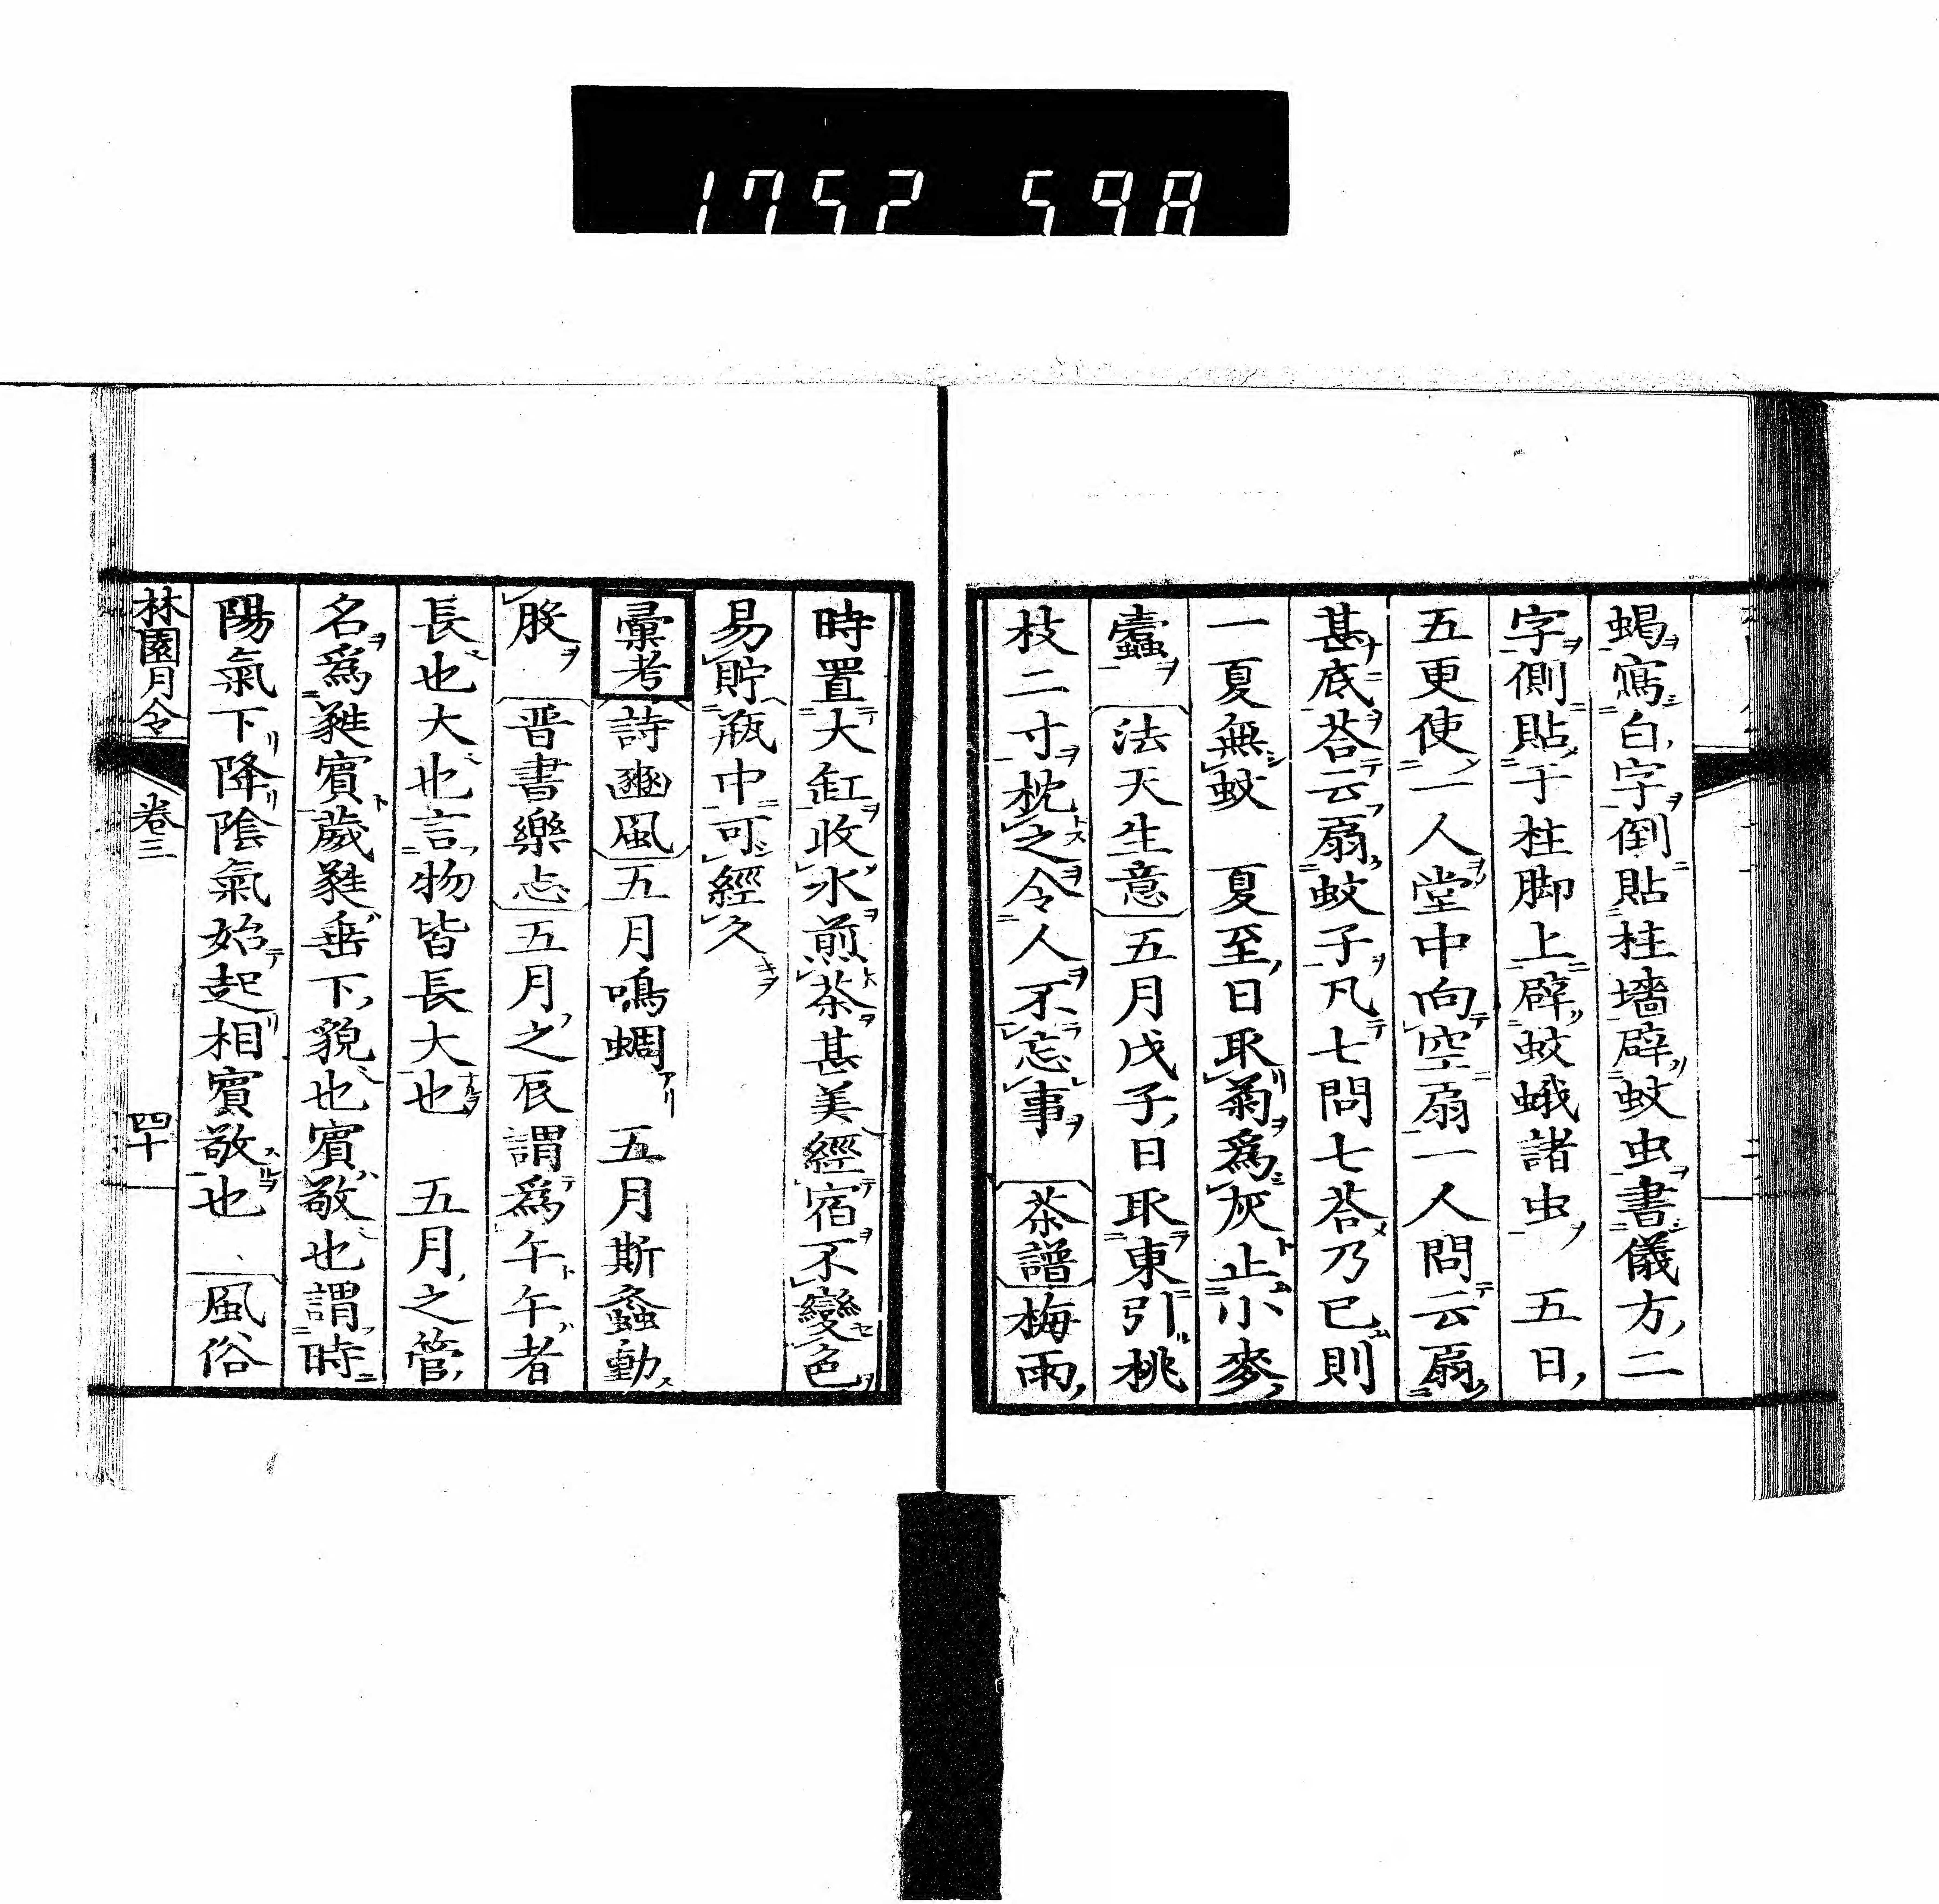 1752 598
蝎寫白字倒貼柱墻辟蚊虫書儀方二
字側貼于柱脚上辟蚊蛾諸虫 五日
五更使一人堂中向空扇一人問云扇
甚底荅云扇蚊子凡七問七荅乃已則
一夏無蚊 夏至日取菊爲灰止小麥
蠹 法天生意五月戊子日取東引桃
枝二寸枕之令人不忘事 茶譜梅雨
時置大缸收水煎茶甚美經宿不變色
易貯瓶中可經久
彚考 詩豳風五月鳴蜩 五月斯螽動
股 晋書樂志五月之辰謂爲午午者
長也大也言物皆長大也 五月之管
名爲蕤賓葳蕤垂下貌也賓敬也謂時
陽氣下降陰氣始起相賓敬也 風俗
林園月令 卷三 四十